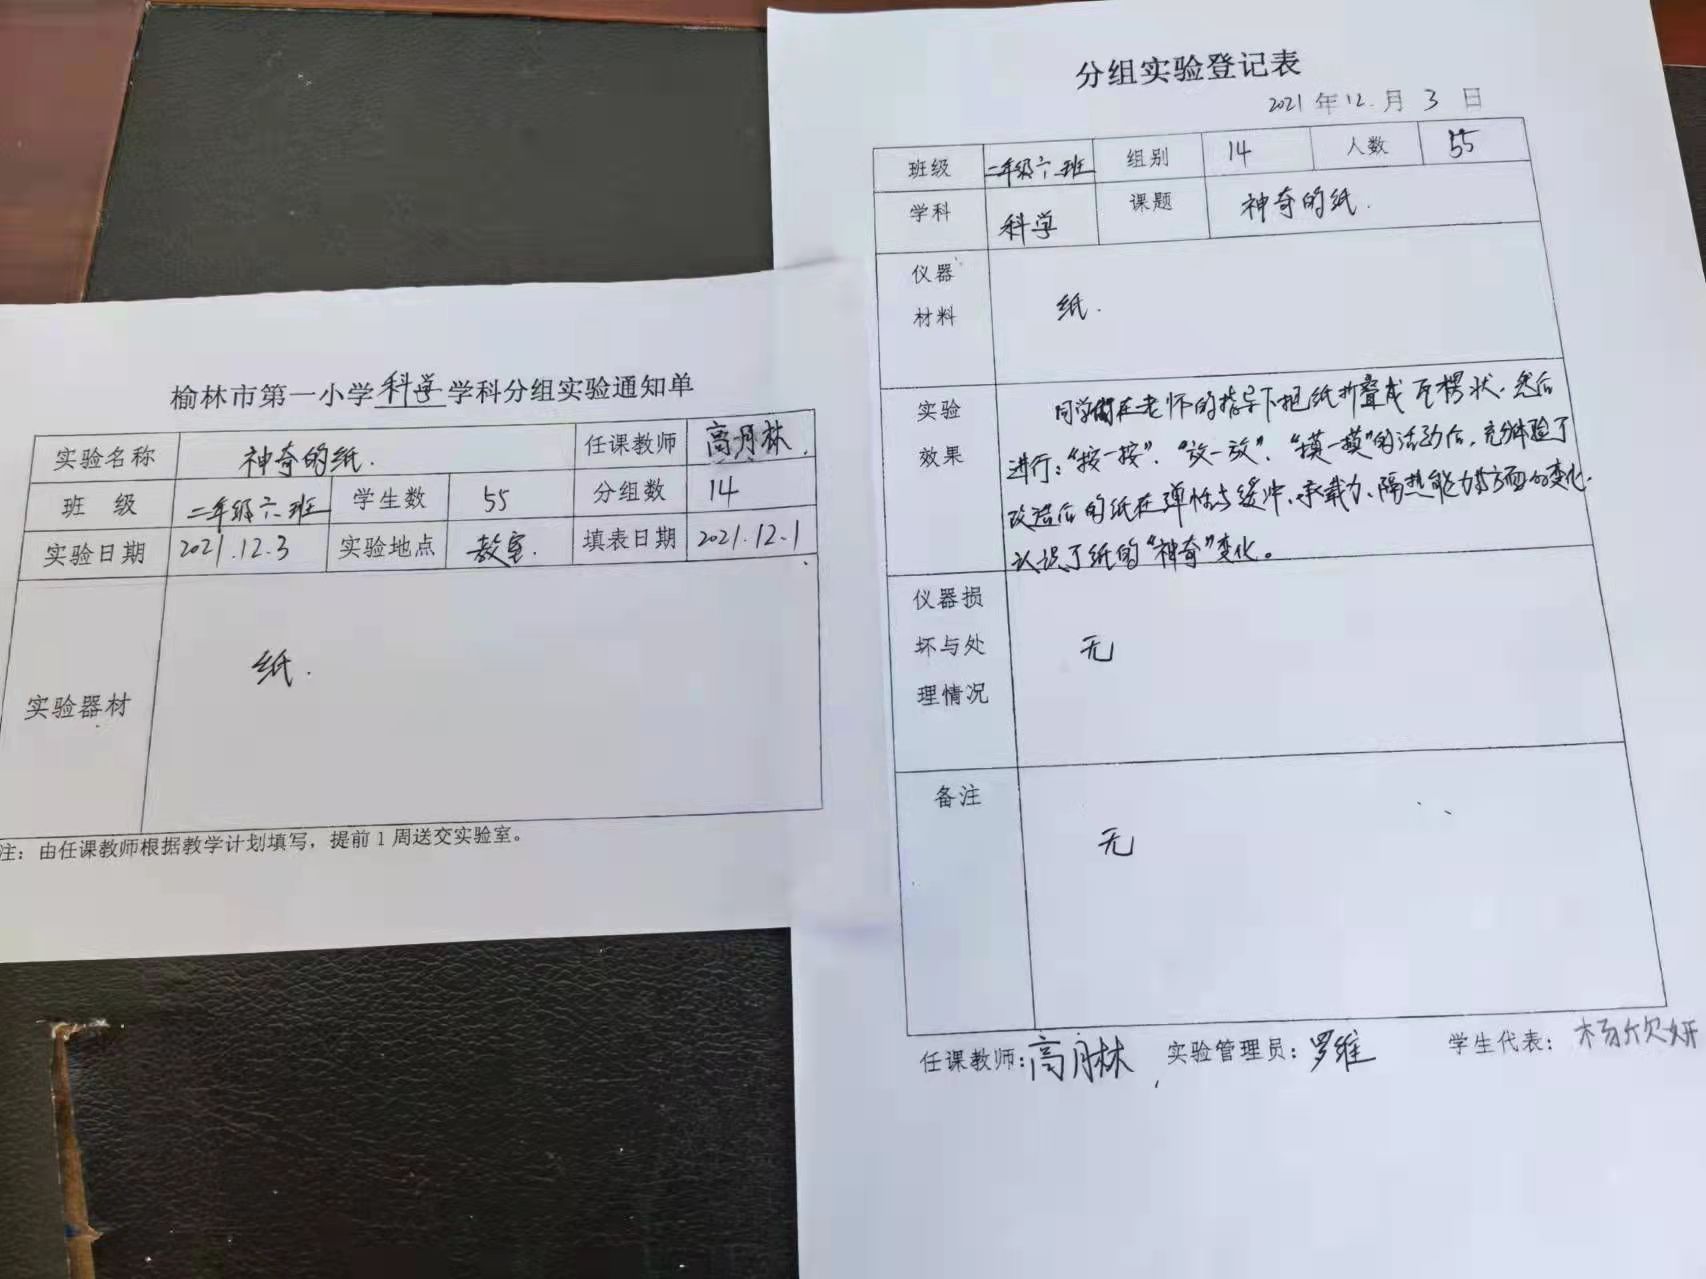 榆林市第一小学科学学科分组实验通知单
实验名称 神奇的纸. 任课教师 高月林.
班 级 二年级六班 学生数 55 分组数 14
实验日期 2021.12.3 实验地点 教室. 填表日期 2021.12.1
实验器材 纸.
注：由任课教师根据教学计划填写，提前1周送交实验室。
分组实验登记表
2021年12.月3日
班级 二年级六班 组别 14 人数 55
学科 科学 课题 神奇的纸.
仪器
材料
纸.
实验
效果
同学们在老师的指导下把纸折叠成瓦楞状.然后
进行："按一按"、"放一放"、"摸一摸"的活动后,充分体验了
改造后的纸在弹性与缓冲、承载力、隔热能力等方面的变化.
认识了纸的"神奇"变化。
仪器损
坏与处
理情况
无
备注
无
任课教师:高月林 实验管理员:罗维 学生代表:杨欣妍